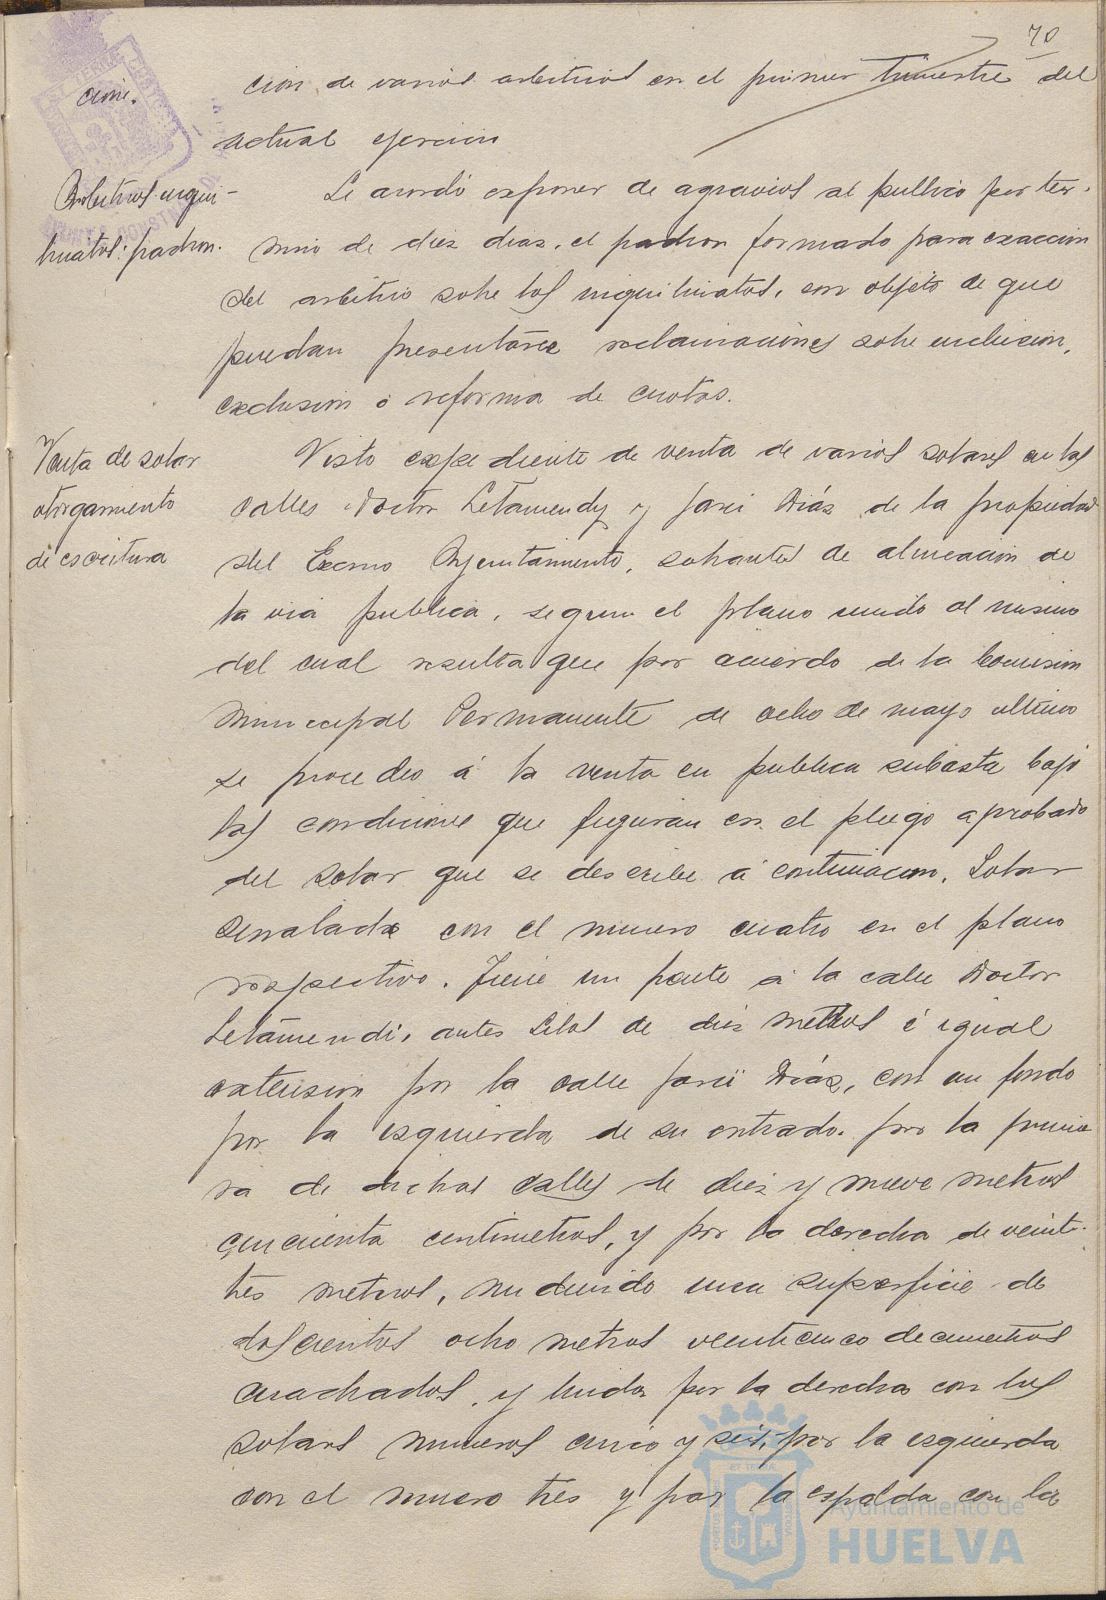 70
cion de varios arbitrios en el primer trimestre del
actual ejercicio
Arbitrios inqui-
linatos: padron.
Se acordó exponer de agravios al publico por ter-
mino de diez dias, el padron formado para exaccion
del arbitrio sobre los inquilinatos, con objeto de que
puedan presentarse reclamaciones sobre inclusion,
exclusion o reforma de cuotas.
Venta de solar
otorgamiento
de escritura
Visto expediente de venta de varios solares en las
calles Doctor Letamendy y Díaz de la propiedad
del Excmo Ayuntamiento, sobrantes de alineacion de
la via publica, segun el plano unido al mismo
del cual resulta que por acuerdo de la Comision
Municipal Permanente de ocho de mayo ultimo
se procedio á la venta en publica subasta bajo
las condiciones que figuran en el pliego aprobado
del solar que se describe á continuacion. Solar
senalado con el numero cuatro en el plano
respectivo. Tiene un frente á la calle Doctor
Letamendi, antes Silos de diez metros é igual
extension por la calle Díaz, con un fondo
por la izquierda de su entrada por la prime
ra de dichas calles de diez y nueve metros
cincuenta centimetros, y por la derecha de veinti-
tres metros, midiendo una superficie de
doscientos ocho metros veinticinco decimetros
cuadrados, y linda por la derecha con los
solares numeros cinco y seis, por la izquierda
con el numero tres y por la espalda con la
Ayuntamiento de
HUELVA